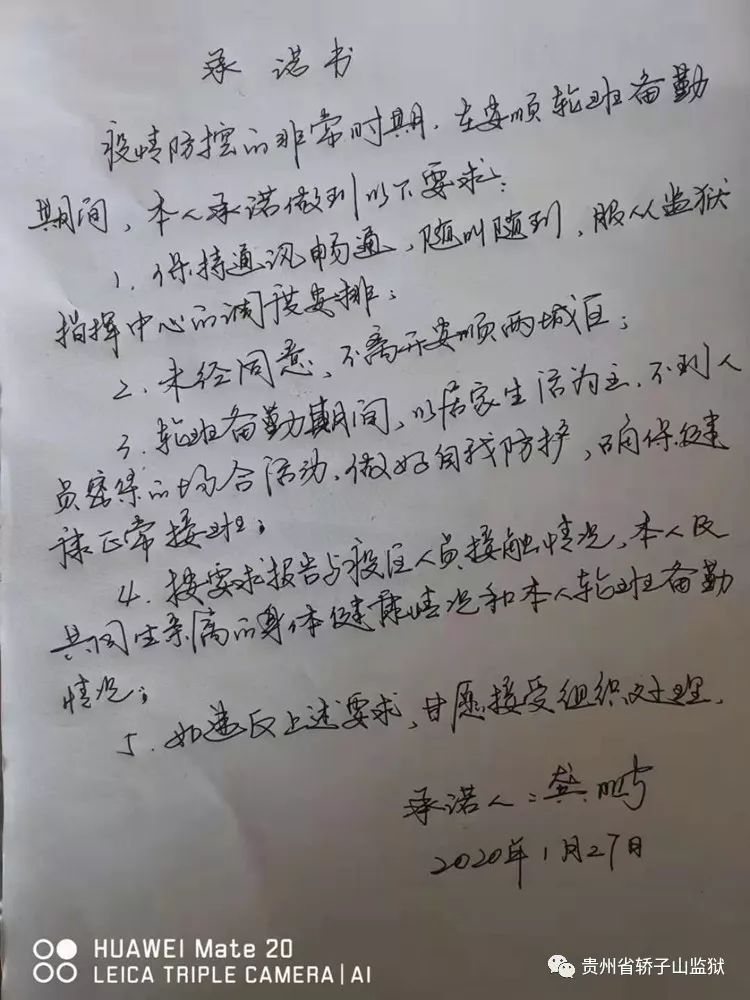 承诺书
疫情防控的非常时期，在安顺轮班备勤
期间，本人承诺做到以下要求：
1、保持通讯畅通，随叫随到，服从监狱
指挥中心的调度安排；
2、未经同意，不离开安顺两城区；
3、轮班备勤期间，以居家生活为主，不到人
员密集的场合活动，做好自我防护，确保健
康正常接班；
4、按要求报告与疫区人员接触情况，本人及
共同生亲属的身体健康情况和本人轮班备勤
情况；
5、如违反上述要求，甘愿接受组织处理。
承诺人：龚鹏
2020年1月27日
HUAWEI Mate 20
LEICA TRIPLE CAMERA | AI
贵州省轿子山监狱